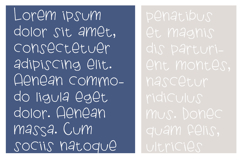 Lorem ipsum
dolor sit amet,
consectetuer
adipiscing elit.
Aenean commo-
do ligula eget
dolor. Aenean
massa. Cum
sociis natoque
penatibus
et magnis
dis parturi-
ent montes,
nascetur
ridiculus
mus. Donec
quam felis,
ultricies